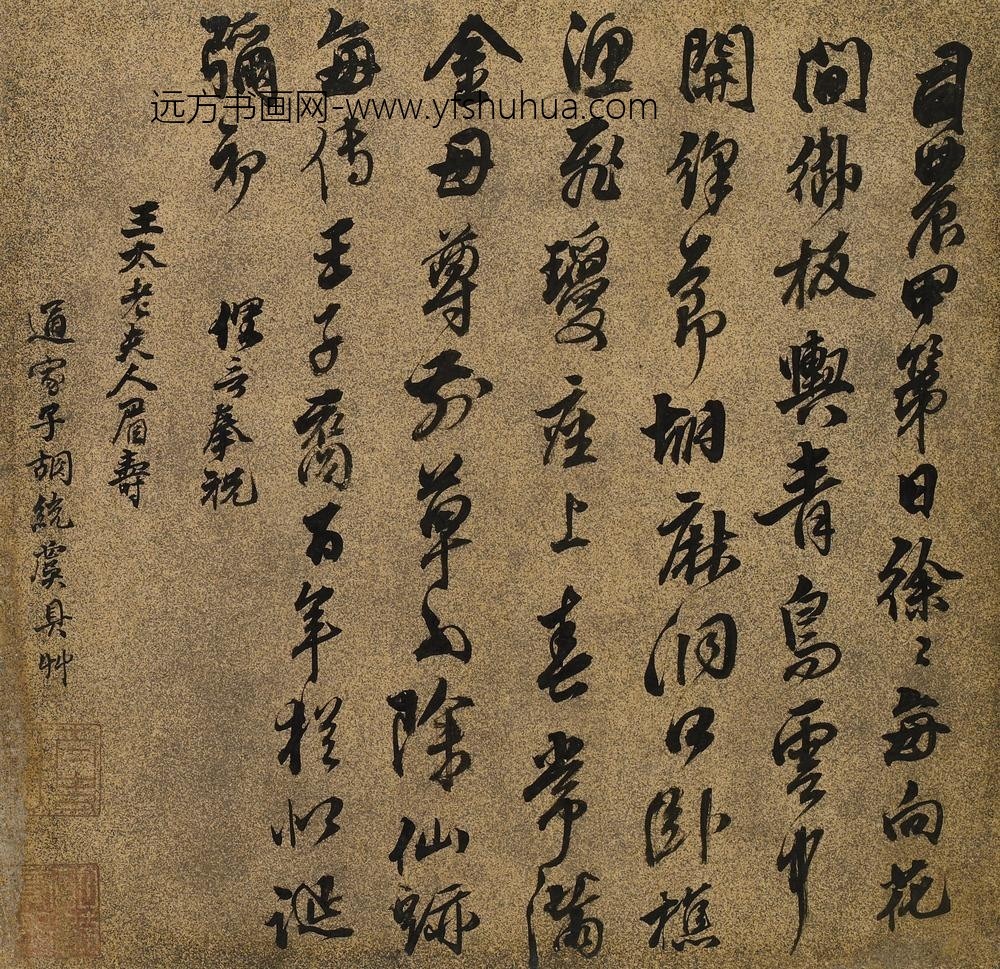 司農甲第日徐〻每向花
間御板輿青鳥雲中
開絳節胡麻洞口臥樵
漁飛瓊座上春常滿
金母尊前草不除仙跡
每傳王子舄百年猶似誕
彌初
俚言奉祝
王太老夫人眉壽
通家子胡統虞具艸
远方书画网-www.yfshuhua.com